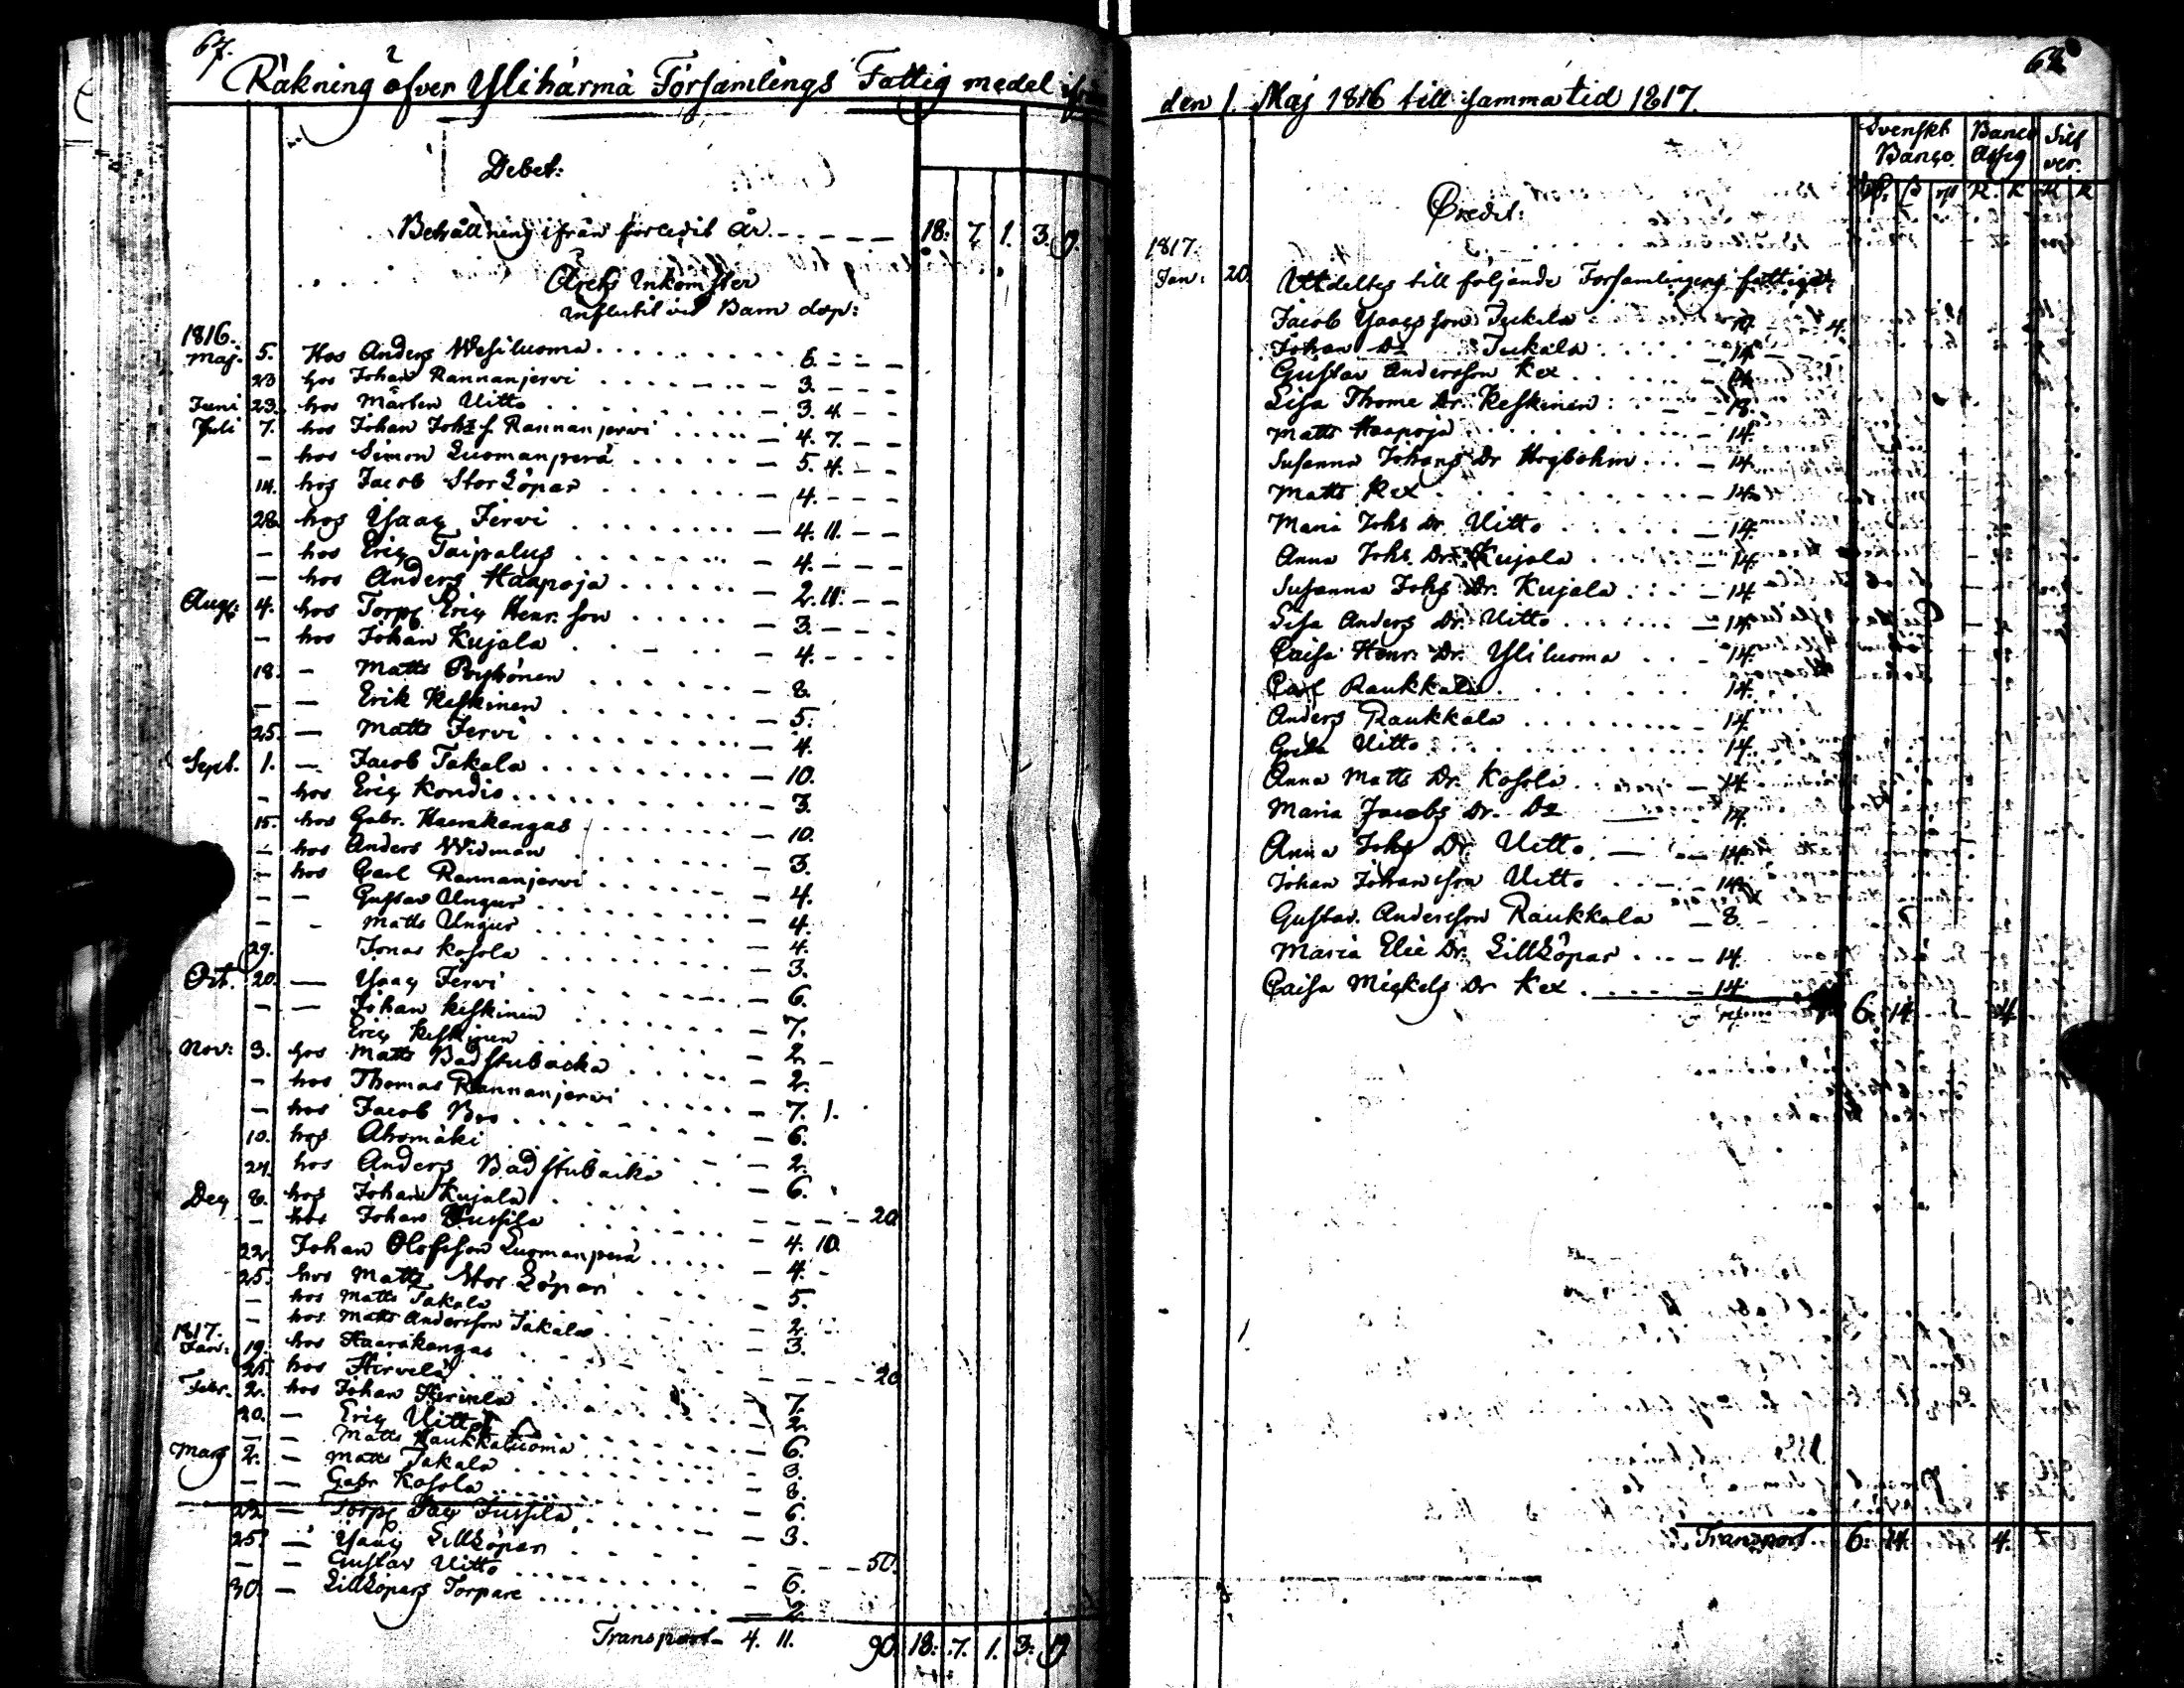 67.
Räkning öfver Ylihärmä Församlings Fattig medel ifrån
Debet:
Behållning ifrån förledit år. - - - - 18: 7 1. 3. 9.
Årets Inkomster
Influtit vid Barn dop:
1816.
Maj. 5. Hos Anders Wesiluoma - 6. - -
23 hos Johan Rannanjervi - 3. - -
Juni 23. hos Mårten Uitto - 3. 4. - -
Juli 7. hos Johan Johs s. Rannanjerwi - 4. 7. - -
- hos Simon Luomanperä - 5. 4. - -
14. hos Jacob Stor Löpar - 4. - - -
28. hos Ysaac Jervi - 4. 11. - -
- hos Eric Taipalus - 4. - - -
- hos Anders Haapoja - 2. 11. - -
Aug: 4. hos Torp Eric Henr. son - 3. - - -
- hos Johan Kujala - 4. - - -
18. - Matts Pöyhönen - 8.
- - Erik Keskinen - 5.
25. - Matts Jervi - 4.
Sept. 1. - Jacob Takala - 10.
- hos Eric Kondis - 3.
15. hos Gabr. Haarakangas - 10.
- hos Anders Widman - 3.
- hos Carl Rannanjerwi - 4.
- - Gustav Ungur - 4.
- - Matts Ungur - 4.
29. Jonas Kosola - 3.
Oct. 20. - Ysaac Jervi - 6.
- - Johan Keskinen - 7.
Eric Keskinen - 2. -
Nov: 3. hos Matts Badstubacka - 2.
- hos Thomas Rannanjerwi - 7. 1.
- hos Jacob Bos - 6.
10. hos Ahomäki - 2.
24. hos Anders Badstubacka - 6.
Dec 8. hos Johan Kujala - - - - 20.
- hos Johan Jussila - 4. 10.
22. Johan Olofsson Luomanperä - 4. -
25. hos Matts Stor Löpari - 5.
- hos Matts Takala - 2.
- hos Matts Andersson Takala - 3.
1817.
Jan: 19. hos Haarakangas - - - - 20
25. hos Hirvelä - 7.
Febr. 2. hos Johan Hirvela - 2.
20. - Eric Uitto - 6.
- - Matts Raukkaluoma - 3.
Mars 2. - Matts Takala - 8.
- - Gabr Kosola - 6.
22 - Torp Jussila - 3.
25. - Ysaac Lillöpari - - - 50.
- - Gustav Uitto - 6.
30. - Lillöpars Torpare - 2.
Transport - 4. 11. 90. 18: 7. 1. 3: 9.
68
den 1. Maj 1816 till samma tid 1817.
Svenskt Banco Silf
Banco. Assig ver.
R. K R K
Credit:
1817.
Jan: 20. Utdeltes till följande Församlingens fattige:
Jacob Ysacsson Tukala - 4.
Johan Do Tukala - 14.
Gustav Andersson Kex - 14
Lisa Thome Dr. Keskinen - 18.
Matts Haapoja - 14.
Susanna Johans Dr Hogbohm - 14.
Matts Kex - 14.
Maria Johs Dr. Uitto - 14.
Anna Johs. Dr. Kujala - 14.
Susanna Johs Dr. Kujala - 14
Lisa Anders Dr. Uitto - 14.
Caisa Henr: Dr. Yliluoma - 14.
Carl Raukkala - 14.
Anders Raukkala - 14.
Greta Uitto - 14.
Anna Matts Dr. Kosola - 14.
Maria Jacobs Dr. Do - 14.
Anna Johs Dr. Uitto - 14.
Johan Johansson Uitto - 14.
Gustav. Andersson Raukkala - 8.
Maria Elie Dr. Lillöpar - 14.
Caisa Mickels Dr Kex - 14. 6. 14. 4.
Transport. 6. 14. 4.